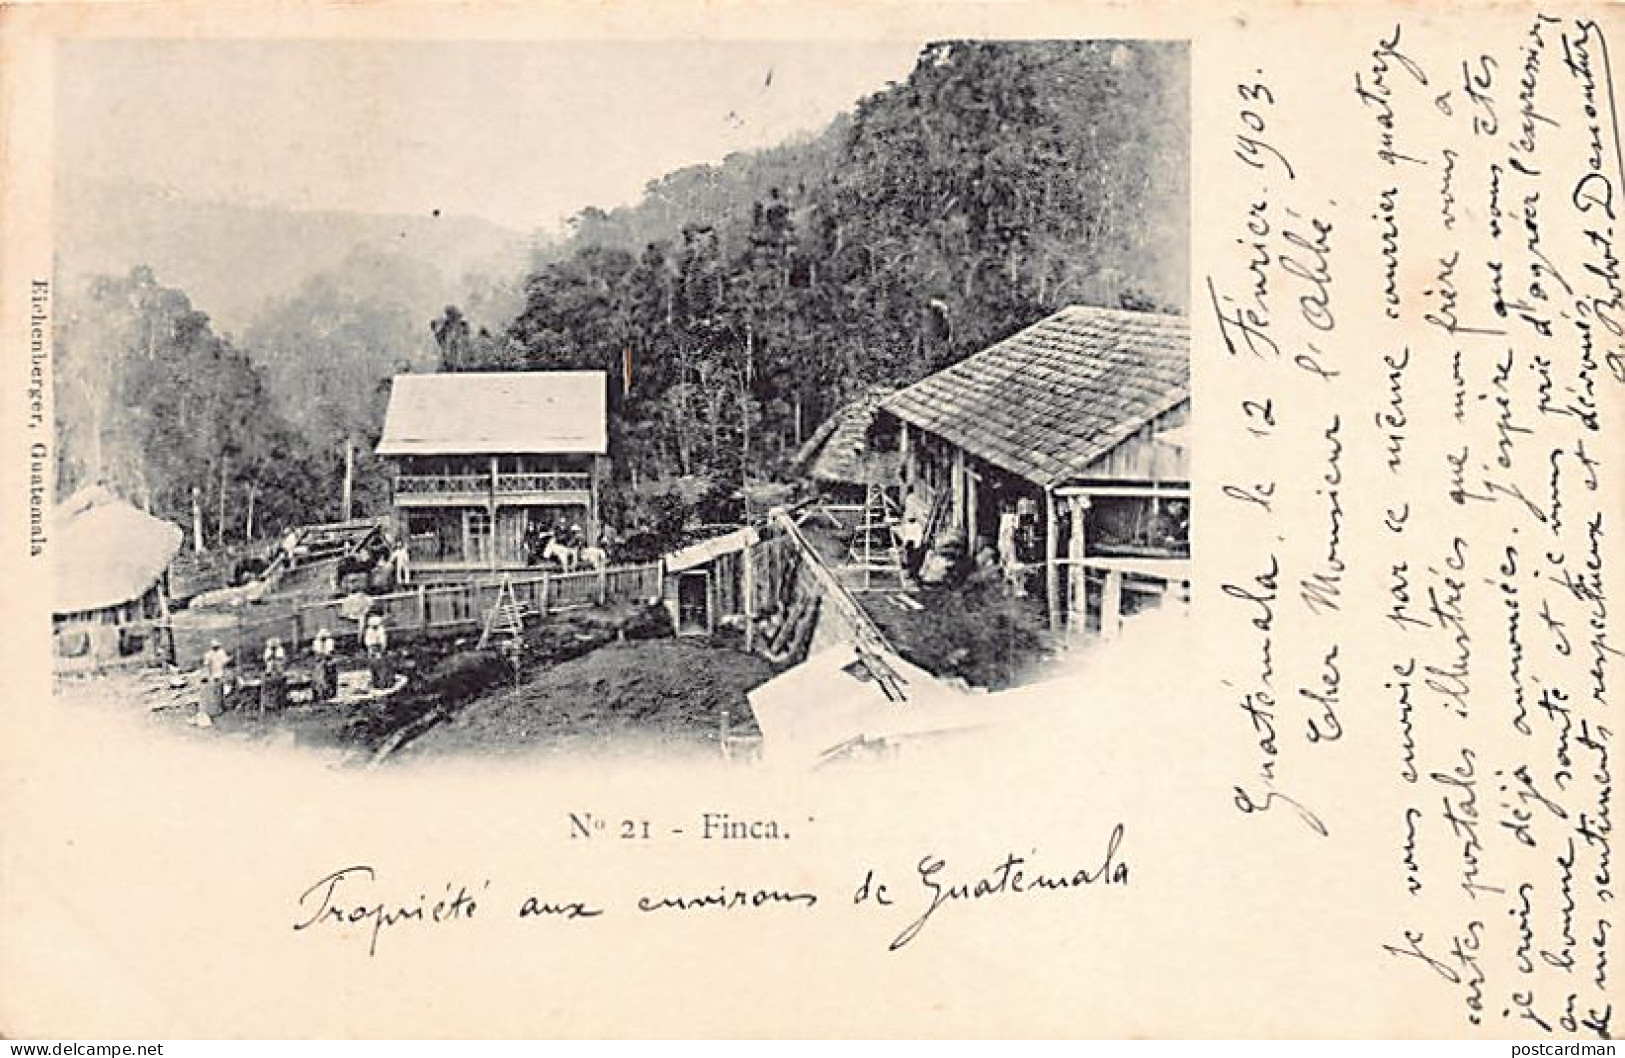 Eichenberger, Guatemala
Nº 21 - Finca.
Propriété aux environs de Guatémala
Guatémala, le 12 Février. 1903.
Cher Monsieur l'Abbé,
Je vous envoie par ce même courrier quatorze
cartes postales illustrées que mon frère vous a
je crois déjà annoncées. J'espère que vous êtes
en bonne santé et je vous prie d'agréer l'expression
de mes sentiments respectueux et dévoués
postcardman